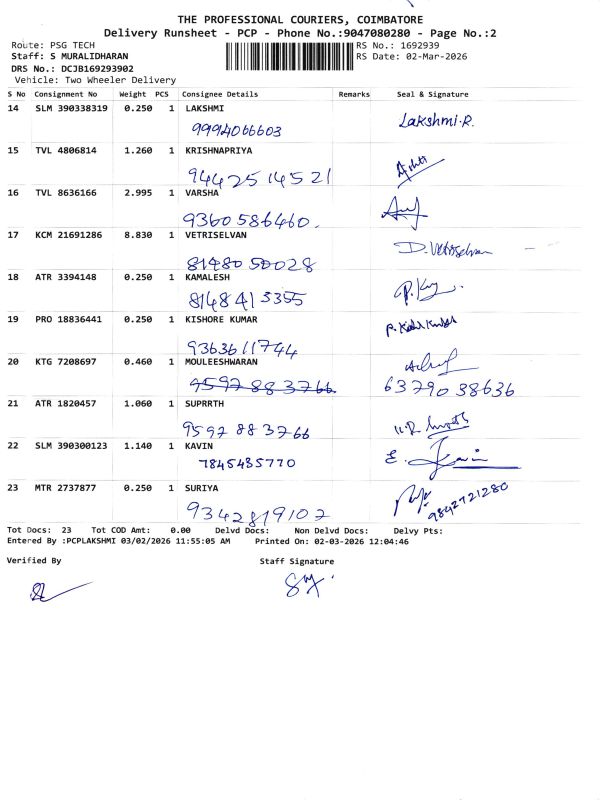 THE PROFESSIONAL COURIERS, COIMBATORE
Delivery Runsheet - PCP - Phone No.:9047080280 - Page No.:2
Route: PSG TECH
RS No.: 1692939
Staff: S MURALIDHARAN
RS Date: 02-Mar-2026
DRS No.: DCJB169293902
Vehicle: Two Wheeler Delivery
S No Consignment No Weight PCS Consignee Details Remarks Seal & Signature
14 SLM 390338319 0.250 1 LAKSHMI
9994066603 Lakshmi.R.
15 TVL 4806814 1.260 1 KRISHNAPRIYA
9442514521
16 TVL 8636166 2.995 1 VARSHA
9360586460.
17 KCM 21691286 8.830 1 VETRISELVAN
8148050028 D. Vetriselvan
18 ATR 3394148 0.250 1 KAMALESH
8148413355
19 PRO 18836441 0.250 1 KISHORE KUMAR
9363611744
20 KTG 7208697 0.460 1 MOULEESHWARAN
9597883766 6379038636
21 ATR 1820457 1.060 1 SUPRRTH
9597883766
22 SLM 390300123 1.140 1 KAVIN
7845435770 E. Kavin
23 MTR 2737877 0.250 1 SURIYA
9342819102 9842721280
Tot Docs: 23 Tot COD Amt: 0.00 Delvd Docs: Non Delvd Docs: Delvy Pts:
Entered By :PCPLAKSHMI 03/02/2026 11:55:05 AM Printed On: 02-03-2026 12:04:46
Verified By Staff Signature